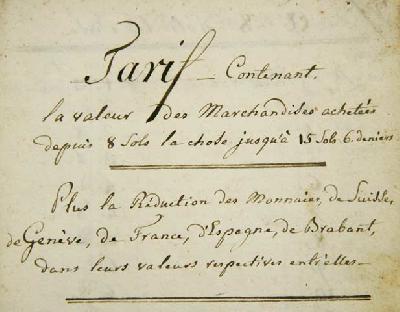 Tarif — Contenant.
la valeur des Marchandises achetées
depuis 8 Sols la chose jusqu'à 15 Sols 6 deniers
Plus la Réduction des Monnaies, de Suisse,
de Genève, de France, d'Espagne, de Brabant,
dans leurs valeurs respectives entr'elles —